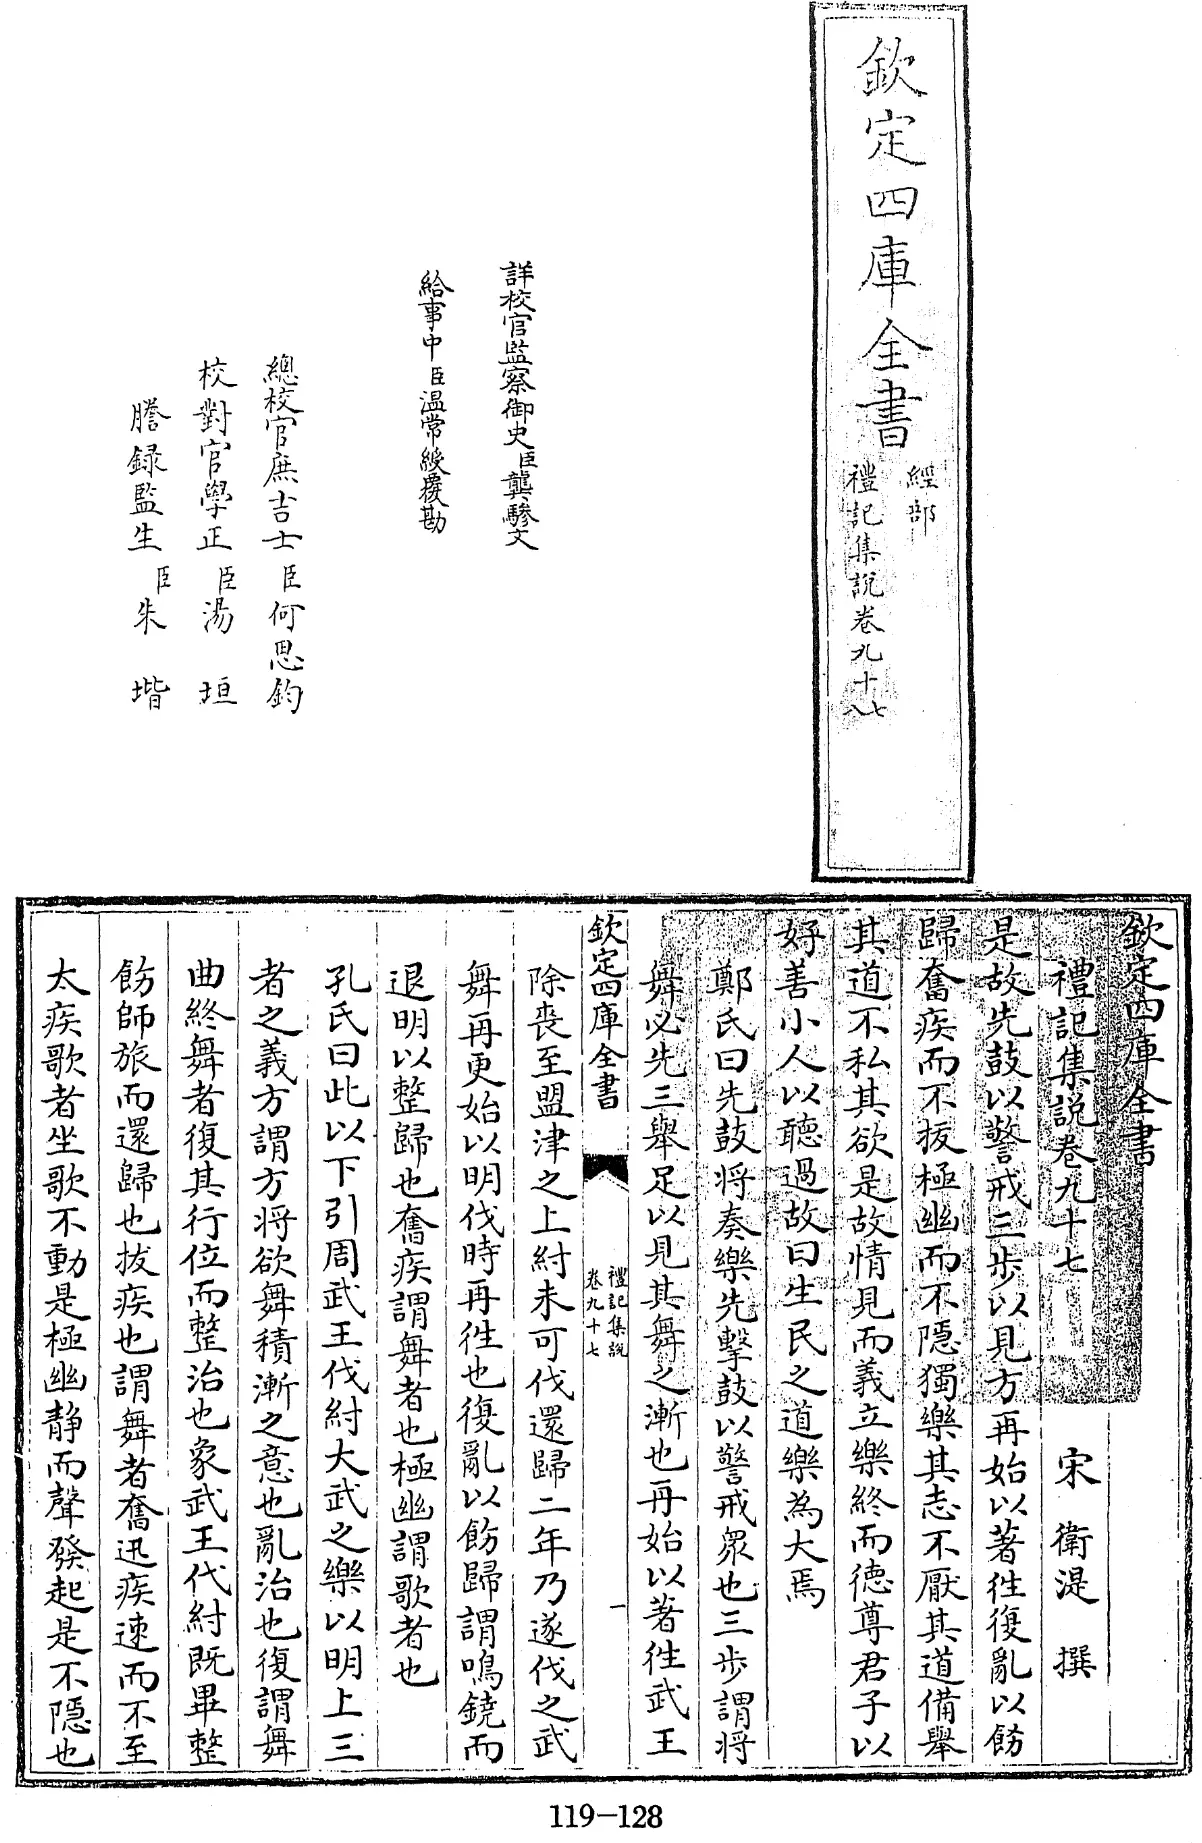 欽定四庫全書
經部
禮記集説卷九十七
八
詳校官監察御史臣龔驂文
給事中臣温常綬覆勘
總校官庶吉士臣何思鈞
校對官學正臣湯垣
謄録監生臣朱堦
欽定四庫全書
禮記集説卷九十七 宋 衛湜 撰
是故先鼓以警戒三步以見方再始以著徃復亂以飭
歸奮疾而不拔極幽而不隠獨樂其志不厭其道備舉
其道不私其欲是故情見而義立樂終而德尊君子以
好善小人以聽過故曰生民之道樂為大焉
鄭氏曰先鼓将奏樂先擊鼓以警戒衆也三步謂将
舞必先三舉足以見其舞之漸也再始以著徃武王
欽定四庫全書
禮記集説
卷九十七
一
除喪至盟津之上紂未可伐還歸二年乃遂伐之武
舞再更始以明伐時再徃也復亂以飭歸謂鳴鐃而
退明以整歸也奮疾謂舞者也極幽謂歌者也
孔氏曰此以下引周武王伐紂大武之樂以明上三
者之義方謂方将欲舞積漸之意也亂治也復謂舞
曲終舞者復其行位而整治也象武王伐紂既畢整
飭師旅而還歸也拔疾也謂舞者奮迅疾速而不至
太疾歌者坐歌不動是極幽静而聲發起是不隠也
119-128